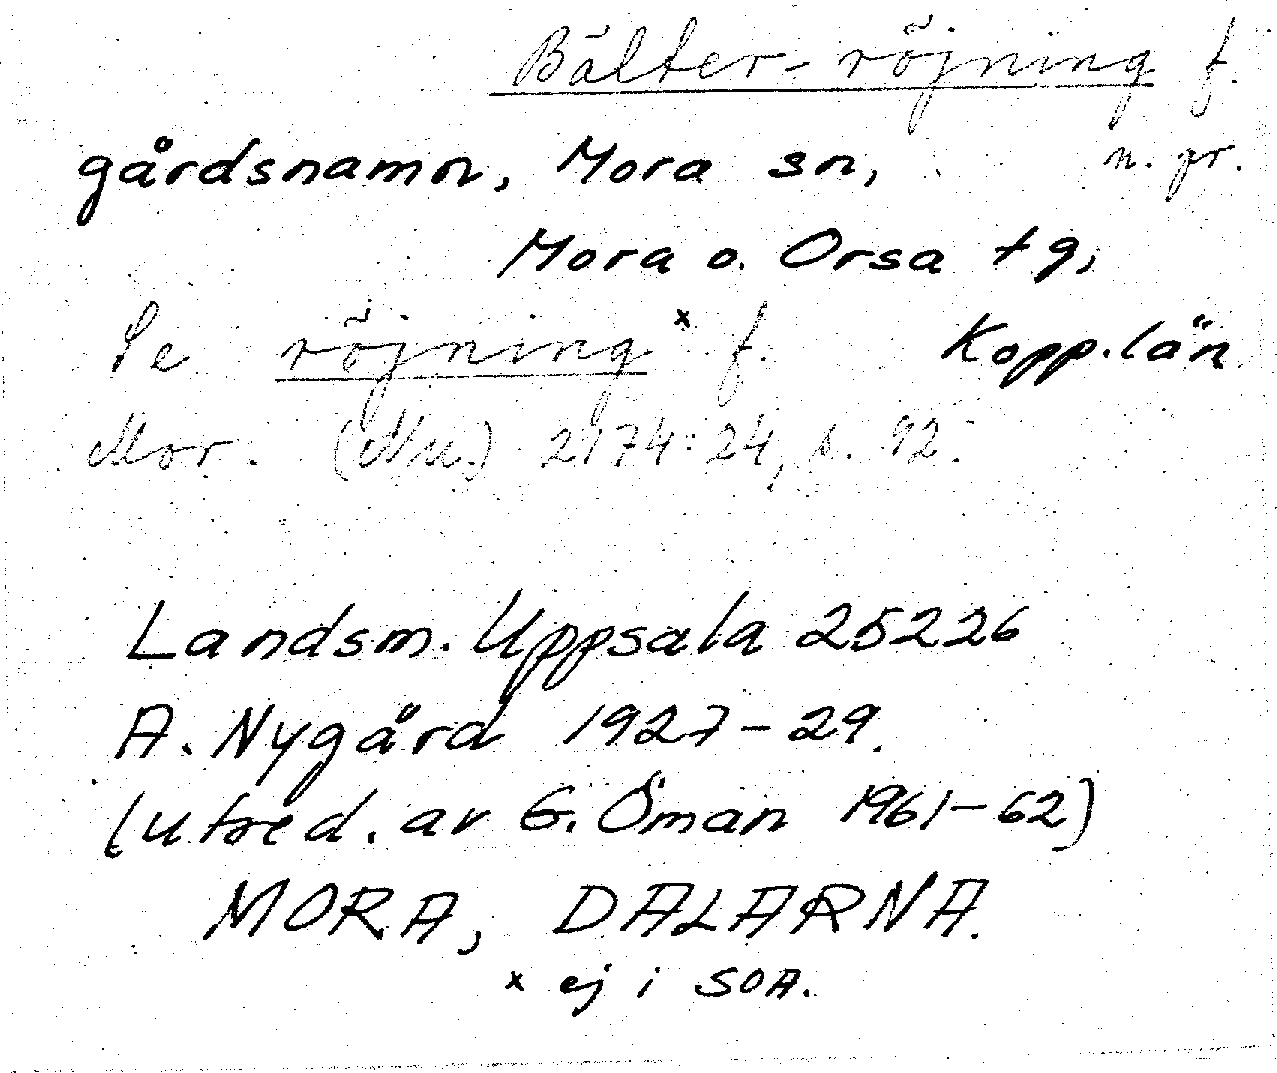 Bälter-röjning f.
gårdsnamn, Mora sn, n. gr.
Mora o. Orsa tg,
Se röjning x f. Kopp.län
Mor. (Nu.) 2174:24, s. 92.
Landsm. Uppsala 25226
A. Nygård 1927-29.
(utred. av G. Öman 1961-62)
MORA, DALARNA.
x ej i SOA.